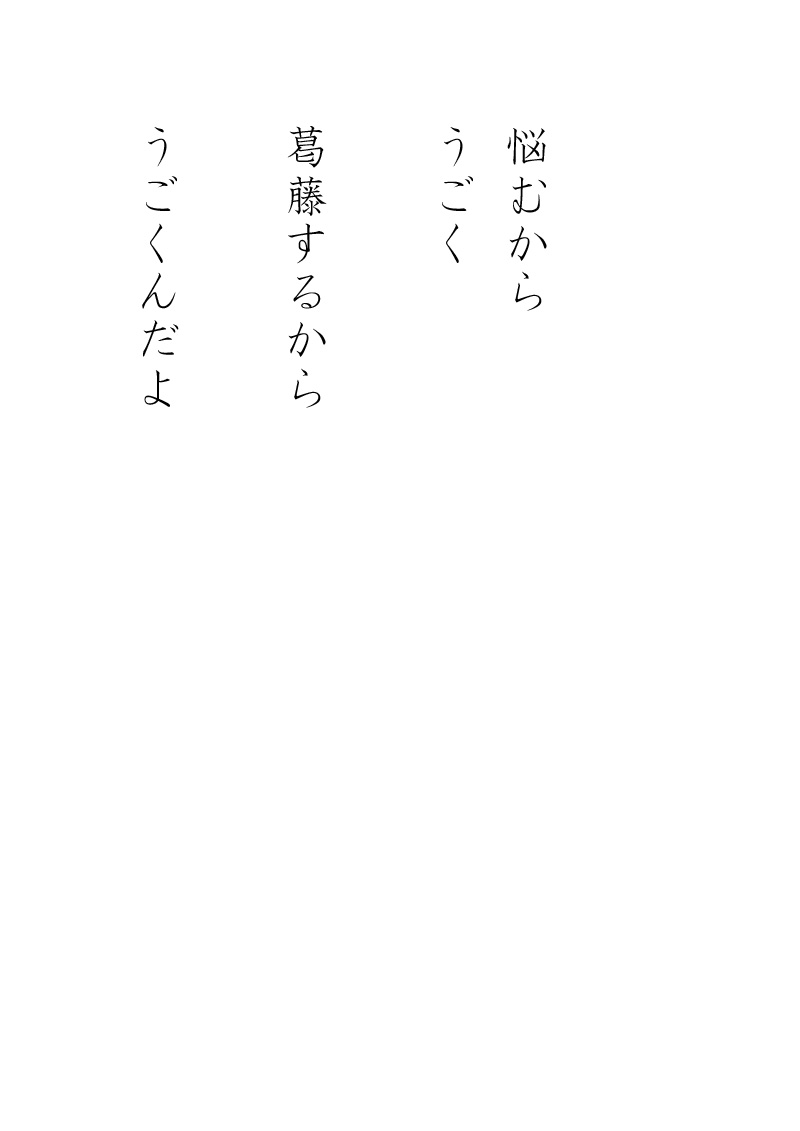 悩むから
うごく
葛藤するから
うごくんだよ